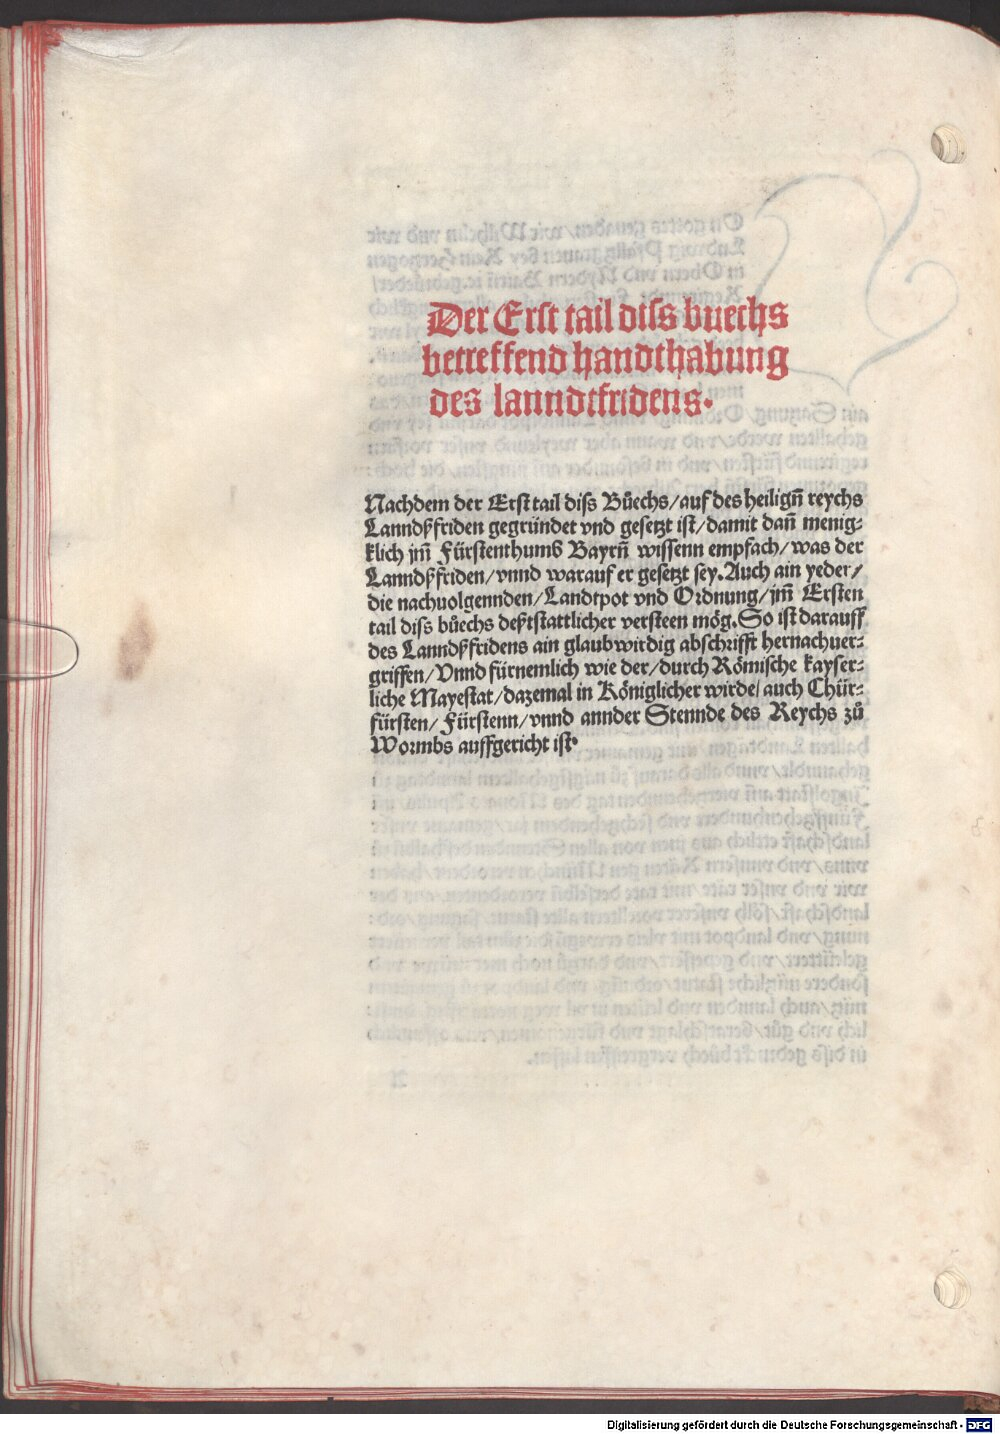 Der Erst tail diss buechs
betreffend handthabung
des lanndtfridens.
Nachdem der Erst tail diss Bůechs/auf des heiligñ reychs
Lanndßfriden gegründet vnd gesetzt ist/damit dañ menig⸗
klich jm̃ Fürstenthumb Bayrñ wissenn empfach/was der
Lanndßfriden/vnnd warauf er gesetzt sey. Auch ain yeder/
die nachuolgennden/Landtpot vnd Ordnung/jm̃ Ersten
tail diss bůechs deßtstattlicher versteen mög. So ist darauff
des Lanndßfridens ain glaubwirdig abschrifft hernachuer⸗
griffen/Vnnd fürnemlich wie der/durch Römische kayser⸗
liche Mayestat/dazemal in Königlicher wirde/auch Chür⸗
fürsten/Fürstenn/vnnd annder Stennde des Reychs zů
Wormbs auffgericht ist.
Digitalisierung gefördert durch die Deutsche Forschungsgemeinschaft - DFG